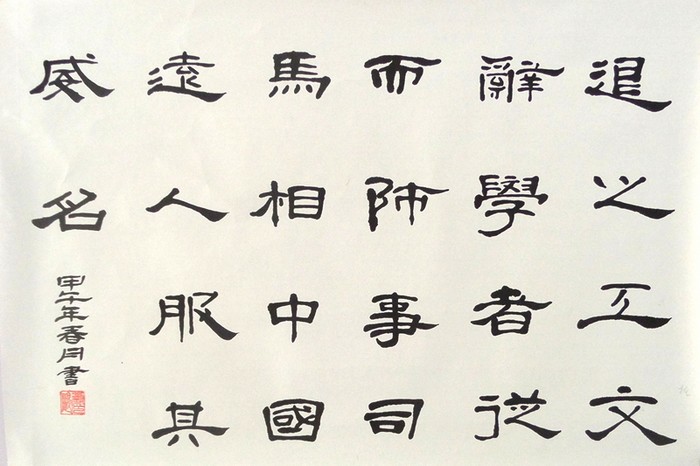 退之工文
辭學者從
而師事司
馬相中國
遠人服其
威名
甲午年春月書